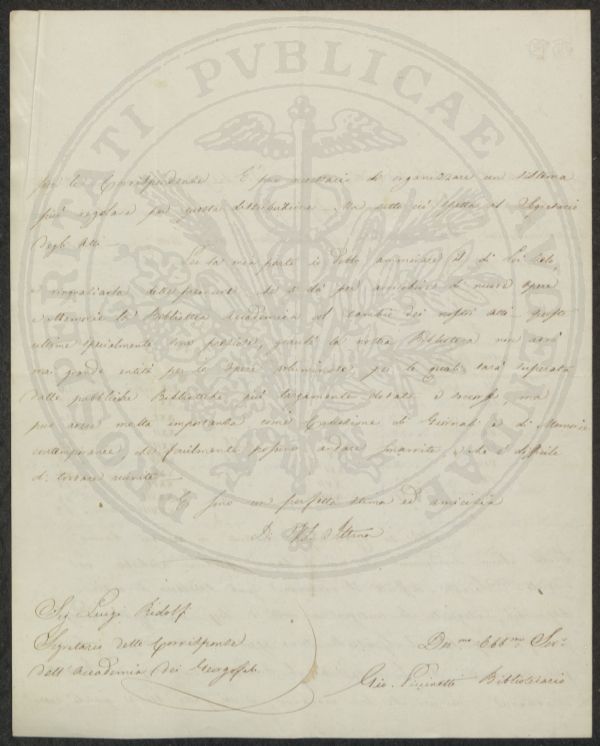 PROSPERITATI PVBLICAE AVGENDAE
per le Corrispondenze. È pur necessario di organizzare un sistema
più regolare per questa distribuzione. Ma tutto ciò spetta al Segretario
degli Atti.
Per la mia parte io debbo ammirare il di Lei zelo,
e ringraziarla delle premure che si dà per arricchire di nuove opere
e Memorie la Biblioteca Accademica col cambio dei nostri atti. Queste
ultime specialmente sono preziose, giacchè la nostra Biblioteca non avrà
mai grande entità per le opere voluminose, per le quali sarà superata
dalle pubbliche Biblioteche più largamente dotate e ricche, ma
può avere molta importanza come Collezione di Giornali e di Memorie
contemporanee che facilmente possono andare smarrite, e che è difficile
di trovare riunite.
E sono con perfetta stima ed amicizia
Di V.S. Illma
Sig. Luigi Ridolfi
Segretario delle Corrispondenze
dell'Accademia dei Georgofili
Dev.mo Obb.mo Ser.
Gio. Bibliotecario